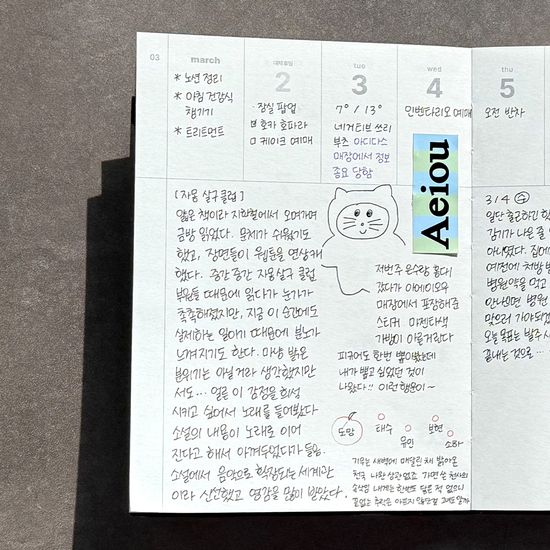 03
march
* 노션 정리
* 아침 건강식
챙기기
* 트리트먼트
대체휴일
2
· 잠실 팝업
호카 홈파라
□ 케이크 예매
tue
3
7° / 13°
네거티브 쓰리
부츠 아디다스
매장에서 정보
종요 당함
wed
4
인벤타리오 예매
Aeiou
thu
5
오전 반차
[자몽 살구 클럽]
얇은 책이라 지하철에서 오며가며
금방 읽었다. 문체가 쉬웠기도
했고, 장면들이 웹툰을 연상케
했다. 중간 중간 자몽살구 클럽
부원들 때문에 읽다가 눈가가
촉촉해졌지만, 지금 이 순간에도
실제하는 일이기 때문에 분노가
느껴지기도 한다. 마냥 밝은
분위기는 아닐거라 생각했지만
서도... 얼른 이 감정을 희석
시키고 싶어서 노래를 들어봤다
소설의 내용이 노래로 이어
진다고 해서 아껴두었다가 들음.
소설에서 음악으로 확장되는 세계관
이라 신선했고 영감을 많이 받았다.
저번주 은수랑 홍대
갔다가 아에이오우
매장에서 포장해준
스티커 마젠타색
가방이 아른거린다
피규어도 한번 뽑아봤는데
내가 뽑고 싶었던 것이
나왔다!! 이런 행운이~
도망
태수
유민
보현
소하
기우는 새벽에 매달린 채 밝아온
천국 나완 상관없죠 가면 쓴 천사의
속삭임 내게는 한번도 닿은 적 없으니
3 / 4
일단 출근하긴 했
감기가 나은 줄
아니였다. 집에
예전에 처방 받
병원약을 먹고
안나으면 병원
맞으러 가야되겠
오늘 목표는 발주
끝내는 것으로 ...